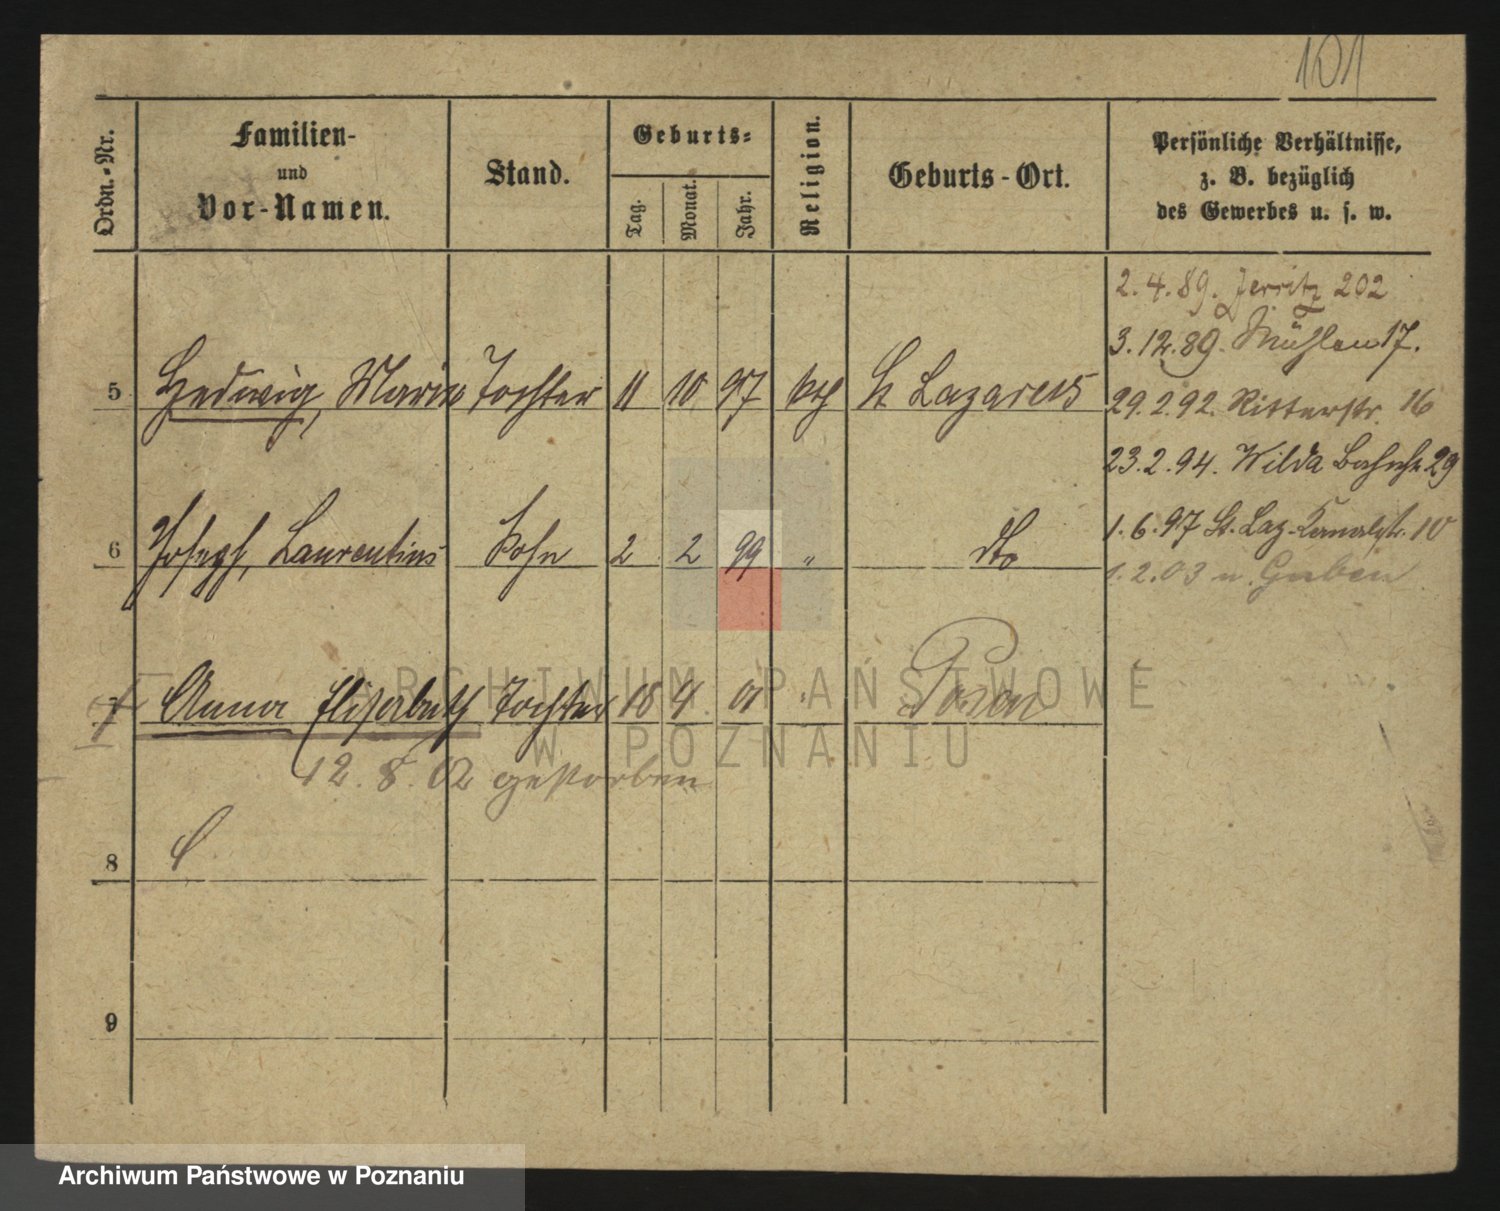 101
Ordn.-Nr.
Familien-
und
Vor-Namen.
Stand.
Geburts-
Tag.
Monat.
Jahr.
Religion.
Geburts-Ort.
Persönliche Verhältnisse,
z. B. bezüglich
des Gewerbes u. s. w.
2.4.89. Jerritz 202
3.12.89. Mühlen 17.
5 Hedwig, Maria Tochter 11 10 97 kth St Lazarus
29.2.92. Ritterstr. 16
23.2.94. Wilda Bahnhstr. 29
6 Joseph, Laurentius Sohn 2 2 99 " dto
1.6.97 St. Laz. Kanalstr. 10
1.2.03 n. Guben
7 Anna Elisabeth Tochter 18 4 01 " Posen
12.8.02 gestorben
8
9
ARCHIWUM PAŃSTWOWE
W POZNANIU
Archiwum Państwowe w Poznaniu